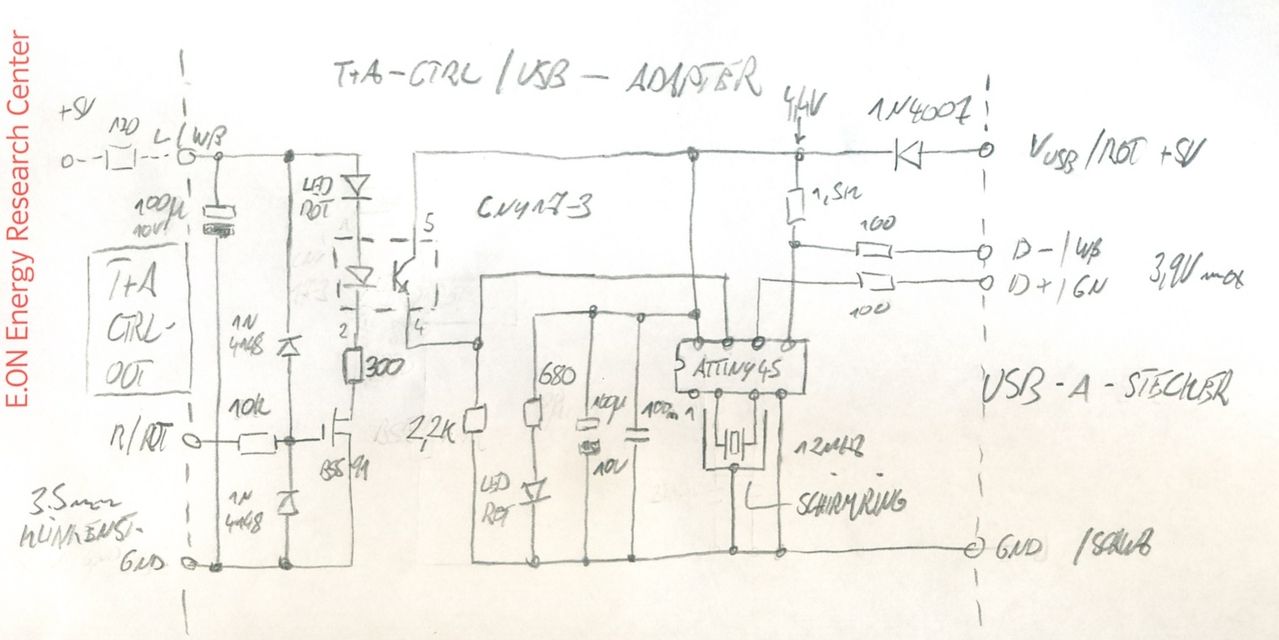 E.ON Energy Research Center
T+A-CTRL / USB - ADAPTER
+5V
120
L/WB
4,4V
1N4007
VUSB/ROT +5V
100µ
10V
LED
ROT
5
CNY17-3
1,5K
100
D-/WB
D+/GN
3,9V max
100
T+A
CTRL-
OUT
1N
4148
2
4
300
ATTINY45
680
USB-A-STECKER
10K
R/ROT
BSS 91
2,2K
100µ
10V
100n
1
12MHz
LED
ROT
SCHIRMRING
3.5mm
KLINKENST.
1N
4148
GND
GND